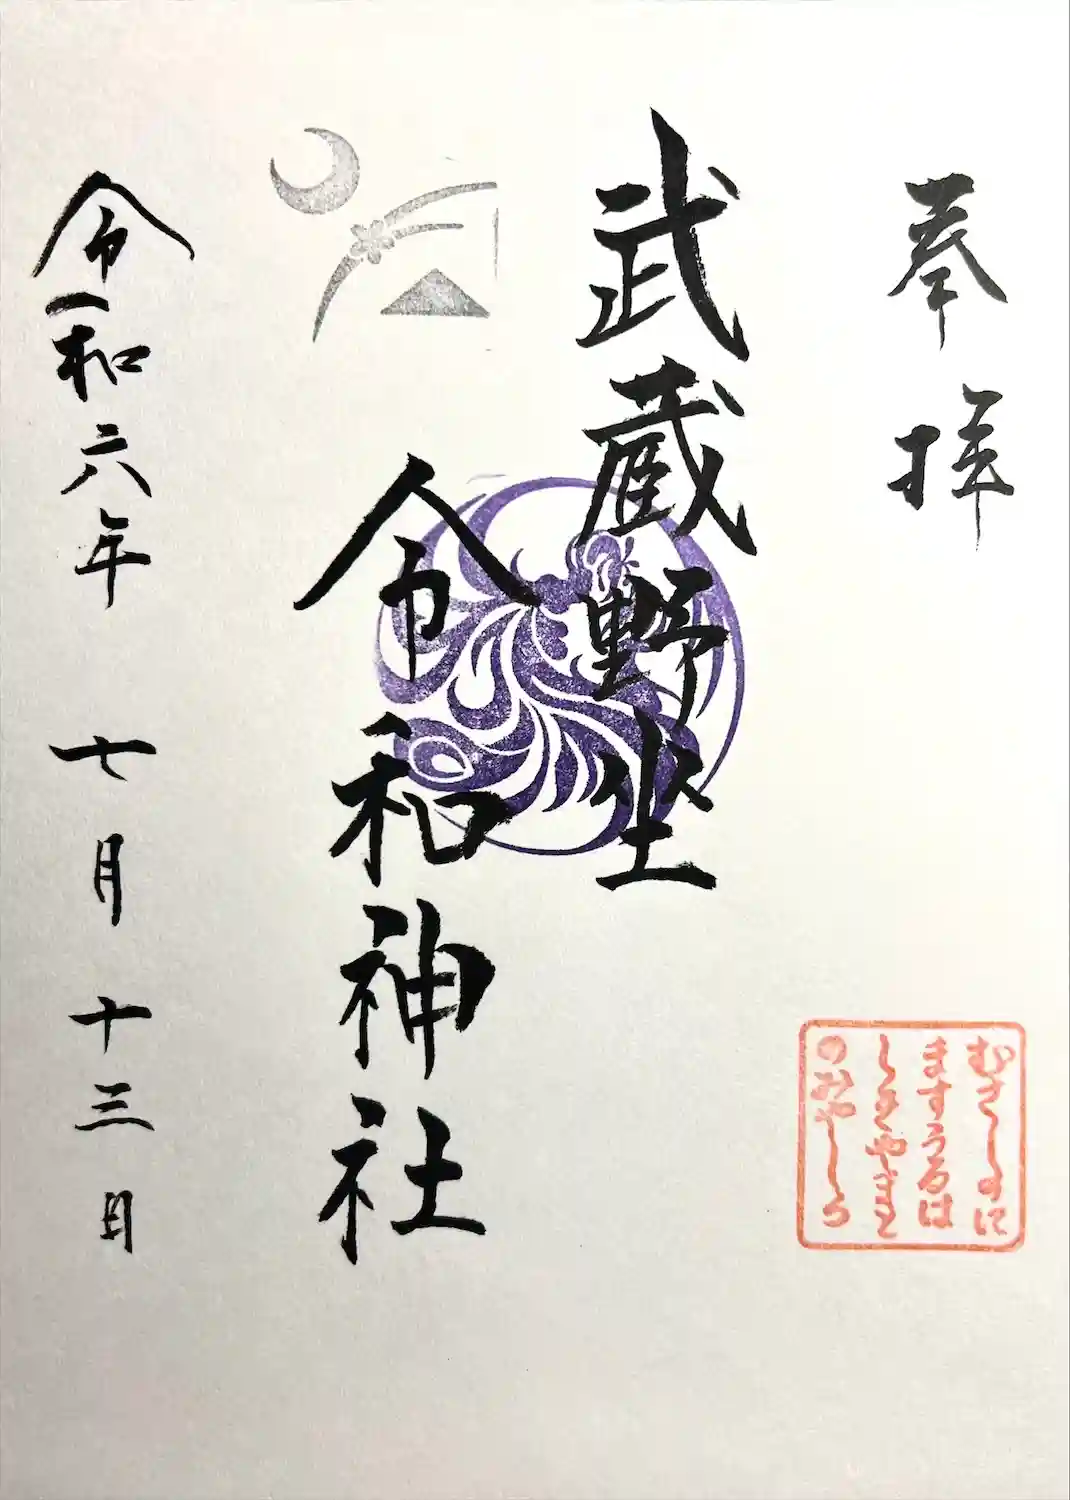 奉拝
むさしのに
ますうるは
しきやまと
のみやしろ
武蔵野坐
令和神社
令和六年 七月 十三日